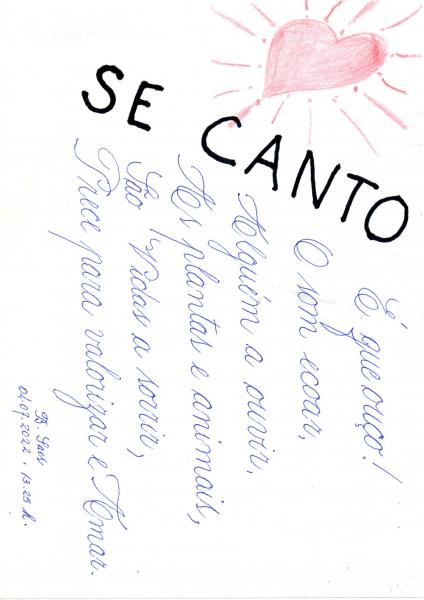 SE CANTO
É que ouço!
O som ecoar,
Alguém a ouvir.
As plantas e animais,
São Vidas a sorrir,
Prece para valorizar e Amar.
04.07.2022 - 13.25 h.